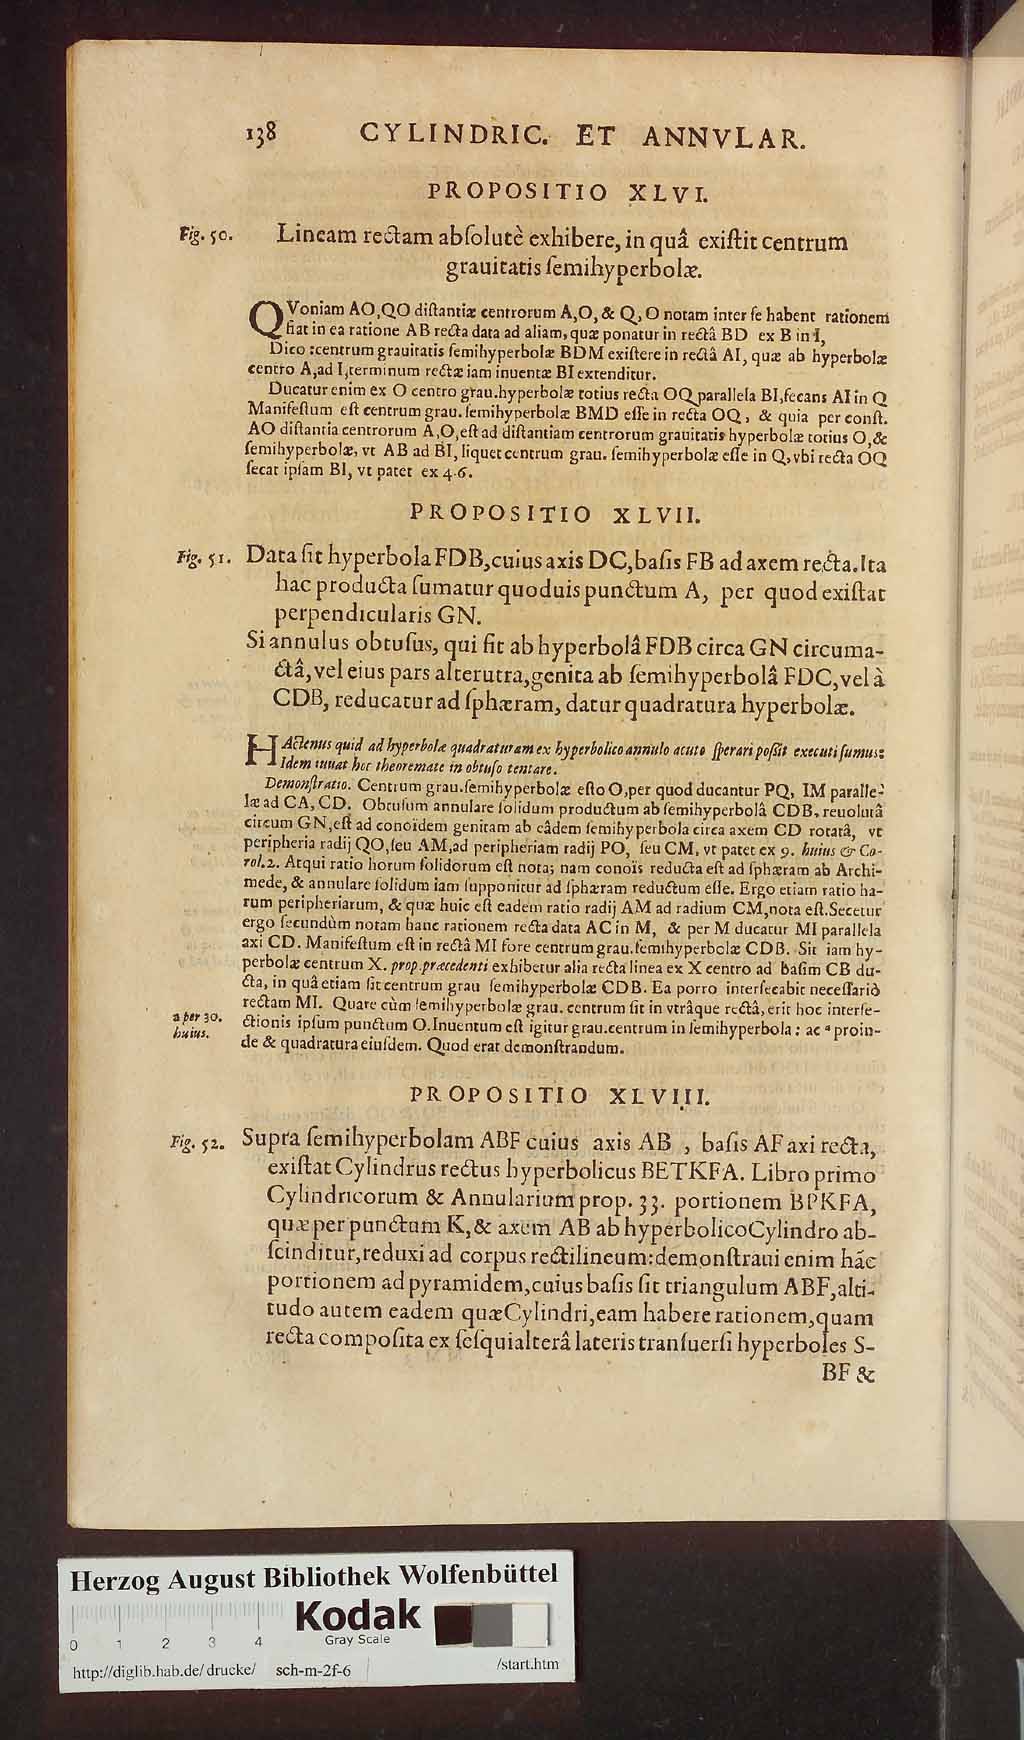 138 CYLINDRIC. ET ANNVLAR.
PROPOSITIO XLVI.
Fig. 50. Lineam rectam abſolutè exhibere, in quâ exiſtit centrum
grauitatis ſemihyperbolæ.
QVoniam AO,QO diſtantiæ centrorum A,O, & Q,O notam inter ſe habent rationem
fiat in ea ratione AB recta data ad aliam, quæ ponatur in rectâ BD ex B in I,
Dico :centrum grauitatis ſemihyperbolæ BDM exiſtere in rectâ AI, quæ ab hyperbolæ
centro A,ad I,terminum rectæ iam inuentæ BI extenditur.
Ducatur enim ex O centro grau.hyperbolæ totius recta OQ parallela BI,ſecans AI in Q
Manifeſtum eſt centrum grau. ſemihyperbolæ BMD eſſe in recta OQ, & quia per conſt.
AO diſtantia centrorum A,O,eſt ad diſtantiam centrorum grauitatis hyperbolæ totius O,&
ſemihyperbolæ, vt AB ad BI, liquet centrum grau. ſemihyperbolæ eſſe in Q,vbi recta OQ
ſecat ipſam BI, vt patet ex 4.6.
PROPOSITIO XLVII.
Fig. 51. Data ſit hyperbola FDB,cuius axis DC,baſis FB ad axem recta.Ita
hac producta ſumatur quoduis punctum A, per quod exiſtat
perpendicularis GN.
Si annulus obtuſus, qui fit ab hyperbolâ FDB circa GN circuma-
ctâ, vel eius pars alterutra,genita ab ſemihyperbolâ FDC,vel à
CDB, reducatur ad ſphæram, datur quadratura hyperbolæ.
HActenus quid ad hyperbolæ quadraturam ex hyperbolico annulo acuto ſperari poſſit executi ſumus:
Idem iuuat hoc theoremate in obtuſo tentare.
Demonſtratio. Centrum grau.ſemihyperbolæ eſto O,per quod ducantur PQ, IM paralle-
læ ad CA, CD. Obtuſum annulare ſolidum productum ab ſemihyperbolâ CDB, reuolutâ
circum GN,eſt ad conoidem genitam ab eâdem ſemihyperbola circa axem CD rotatâ, vt
peripheria radij QO,ſeu AM,ad peripheriam radij PO, ſeu CM, vt patet ex 9. huius & Co-
rol.2. Atqui ratio horum ſolidorum eſt nota; nam conois reducta eſt ad ſphæram ab Archi-
mede, & annulare ſolidum iam ſupponitur ad ſphæram reductum eſſe. Ergo etiam ratio ha-
rum peripheriarum, & quæ huic eſt eadem ratio radij AM ad radium CM,nota eſt.Secetur
ergo ſecundùm notam hanc rationem recta data AC in M, & per M ducatur MI parallela
axi CD. Manifeſtum eſt in rectâ MI fore centrum grau.ſemihyperbolæ CDB. Sit iam hy-
perbolæ centrum X. prop.præcedenti exhibetur alia recta linea ex X centro ad baſim CB du-
cta, in quâ etiam ſit centrum grau ſemihyperbolæ CDB. Ea porro interſecabit neceſſariò
rectam MI. Quare cùm ſemihyperbolæ grau. centrum ſit in vtrâque rectâ, erit hoc interſe-
a per 30. ctionis ipſum punctum O.Inuentum eſt igitur grau.centrum in ſemihyperbola: ac ª proin-
huius. de & quadratura eiuſdem. Quod erat demonſtrandum.
PROPOSITIO XLVIII.
Fig. 52. Supra ſemihyperbolam ABF cuius axis AB , baſis AF axi recta,
exiſtat Cylindrus rectus hyperbolicus BETKFA. Libro primo
Cylindricorum & Annularium prop. 33. portionem BPKFA,
quæ per punctum K,& axem AB ab hyperbolicoCylindro ab-
ſcinditur,reduxi ad corpus rectilineum:demonſtraui enim hãc
portionem ad pyramidem,cuius baſis ſit triangulum ABF,alti-
tudo autem eadem quæCylindri,eam habere rationem,quam
recta compoſita ex ſeſquialterâ lateris tranſuerſi hyperboles S-
BF &
Herzog August Bibliothek Wolfenbüttel
Kodak
Gray Scale
0 1 2 3 4
http://diglib.hab.de/drucke/ sch-m-2f-6 /start.htm